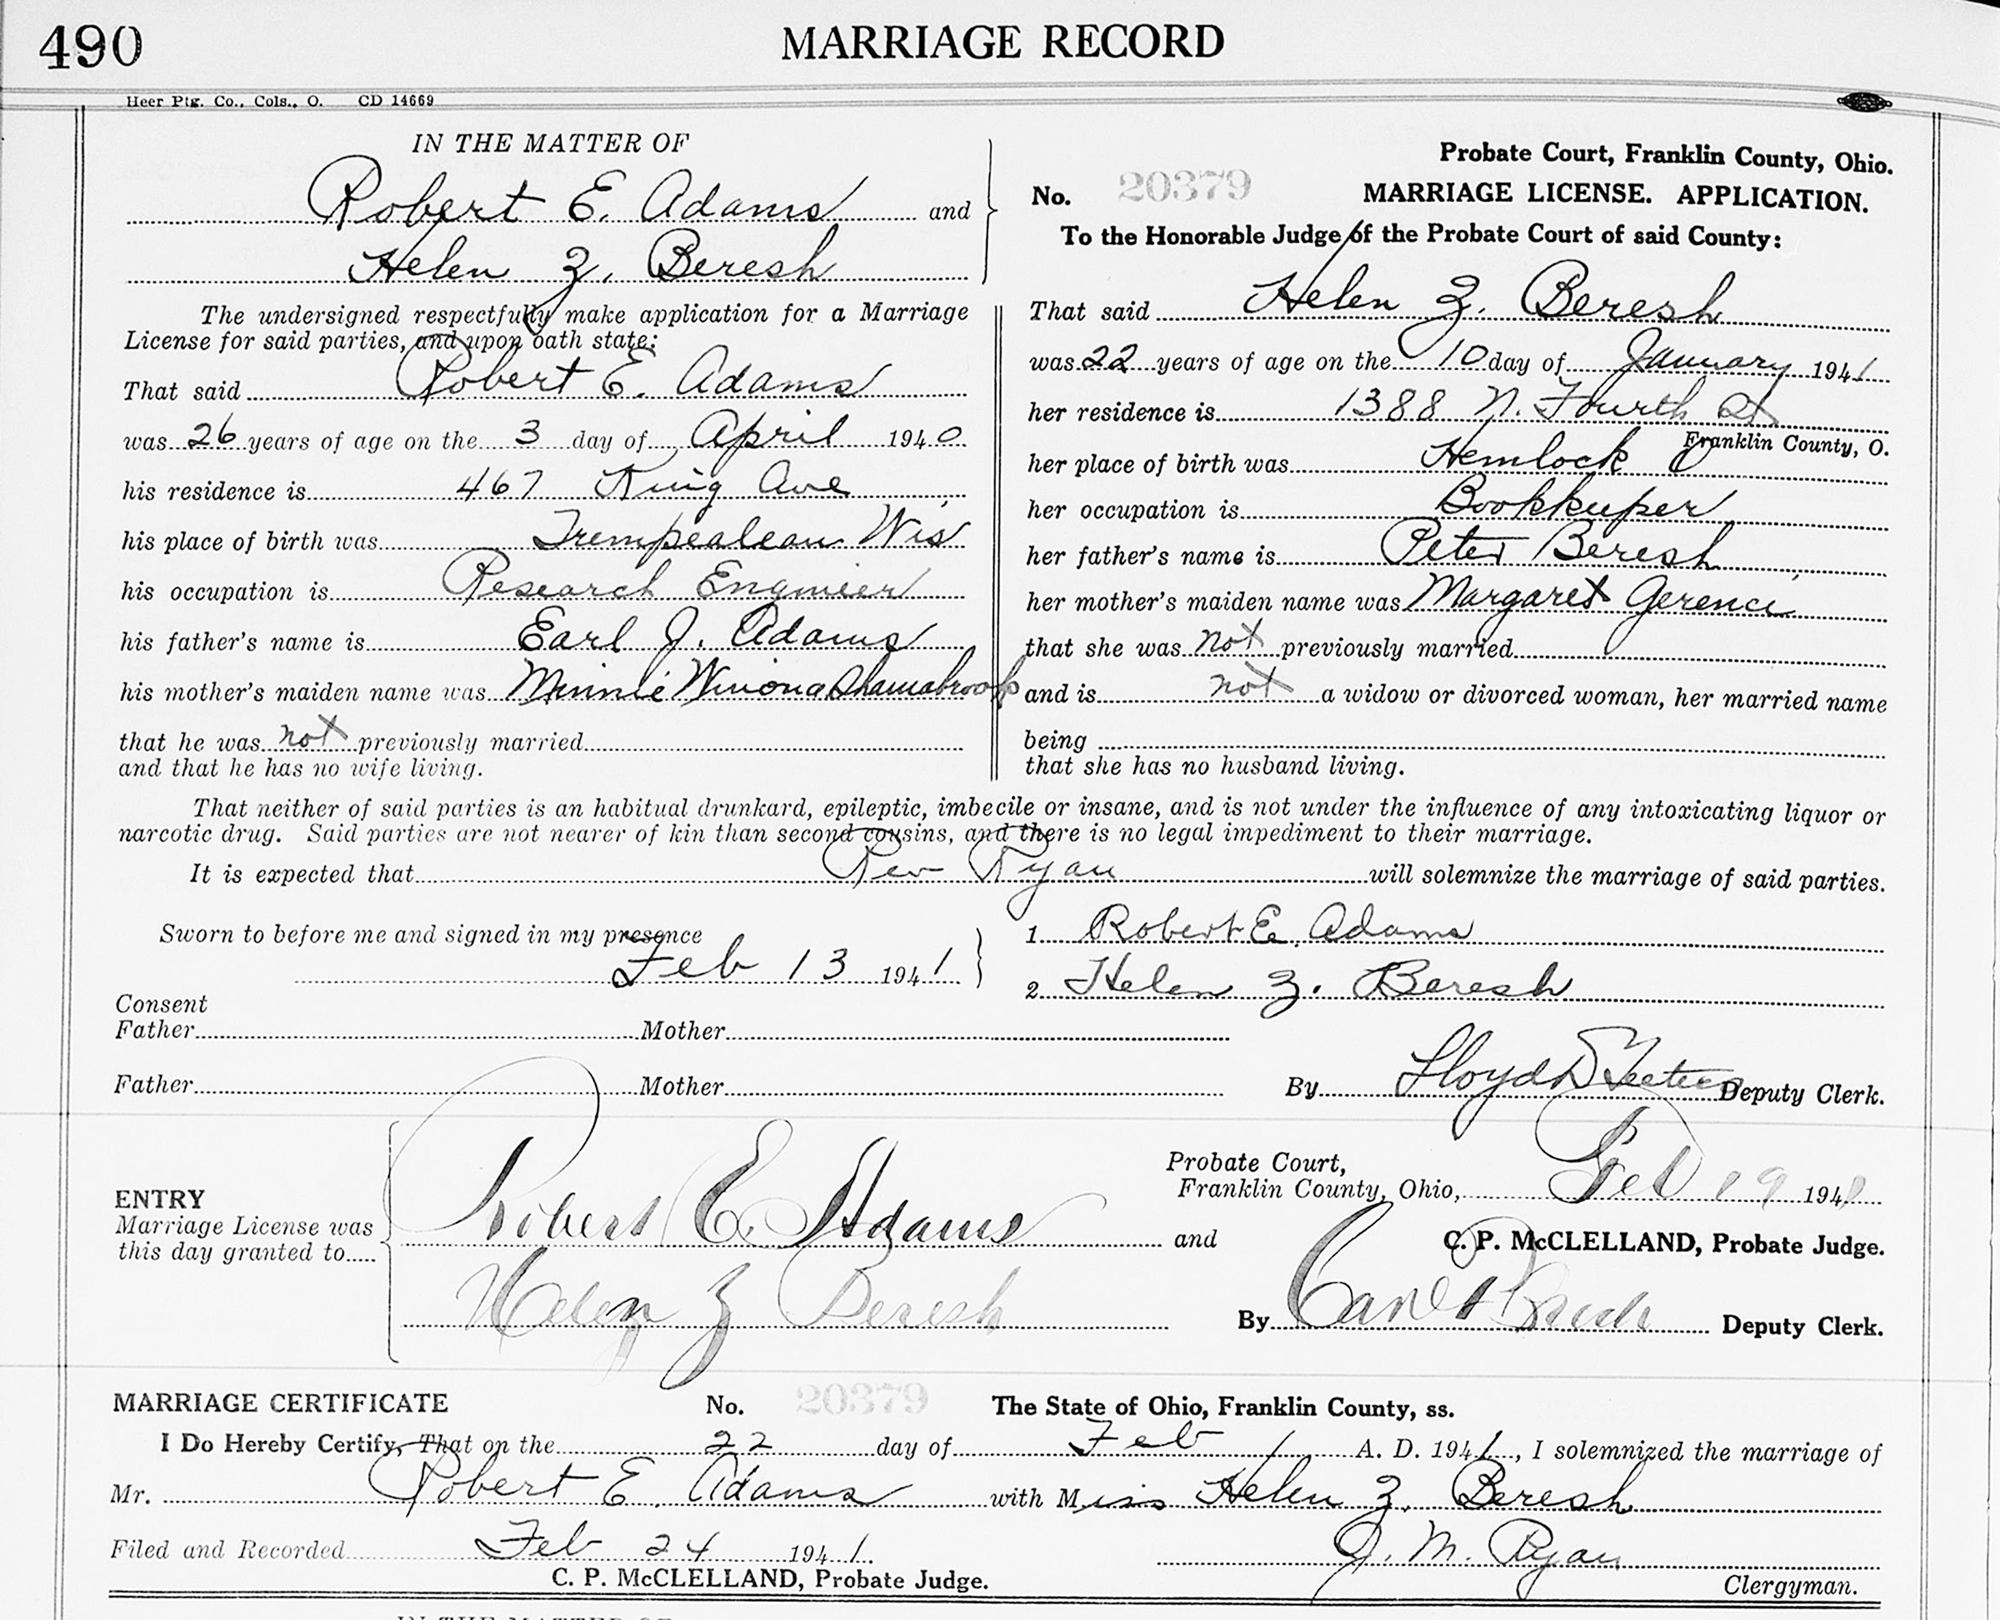 490
MARRIAGE RECORD
Heer Ptg. Co., Cols., O. CD 14669
IN THE MATTER OF
Robert E. Adams and
Helen Z. Beresh
The undersigned respectfully make application for a Marriage
License for said parties, and upon oath state:
That said Robert E. Adams
was 26 years of age on the 3 day of April 1940
his residence is 467 King Ave
his place of birth was Trempealeau Wis
his occupation is Research Engineer
his father's name is Earl J. Adams
his mother's maiden name was Minnie Winona
that he was not previously married
and that he has no wife living.
Probate Court, Franklin County, Ohio.
No. 20379 MARRIAGE LICENSE. APPLICATION.
To the Honorable Judge of the Probate Court of said County:
That said Helen Z. Beresh
was 22 years of age on the 10 day of January 1941
her residence is 1388 N. Fourth St
Franklin County, O.
her place of birth was Hemlock O
her occupation is Bookkeeper
her father's name is Peter Beresh
her mother's maiden name was Margaret Gerenci
that she was not previously married
and is not a widow or divorced woman, her married name
being
that she has no husband living.
That neither of said parties is an habitual drunkard, epileptic, imbecile or insane, and is not under the influence of any intoxicating liquor or
narcotic drug. Said parties are not nearer of kin than second cousins, and there is no legal impediment to their marriage.
It is expected that Rev Ryan will solemnize the marriage of said parties.
Sworn to before me and signed in my presence
Feb 13 1941
1 Robert E. Adams
2 Helen Z. Beresh
Consent
Father Mother
Father Mother
By Lloyd D Teeters Deputy Clerk.
ENTRY
Marriage License was
this day granted to
Robert E. Adams and
Helen Z Beresh
Probate Court,
Franklin County, Ohio, Feb 19 1941
C. P. McCLELLAND, Probate Judge.
By Deputy Clerk.
MARRIAGE CERTIFICATE No. 20379 The State of Ohio, Franklin County, ss.
I Do Hereby Certify, That on the 22 day of Feb A. D. 1941, I solemnized the marriage of
Mr. Robert E. Adams with Miss Helen Z. Beresh
Filed and Recorded Feb 24 1941.
J. M. Ryan
C. P. McCLELLAND, Probate Judge.
Clergyman.
IN THE MATTER OF